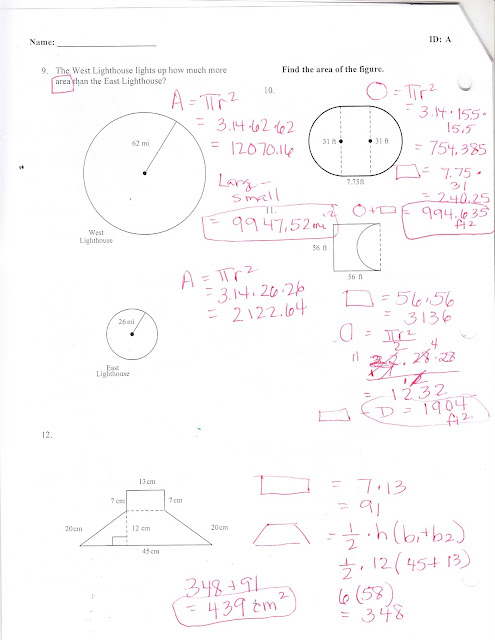 Name:
ID: A
9. The West Lighthouse lights up how much more
area than the East Lighthouse?
62 mi
West
Lighthouse
A = πr²
= 3.14·62·62
= 12070.16
Larg -
small
= 9947.52 mi²
26 mi
East
Lighthouse
A = πr²
= 3.14·26·26
= 2122.64
Find the area of the figure.
10.
31 ft
31 ft
7.75ft
= πr²
= 3.14·15.5·
15.5
= 754.385
= 7.75·
31
= 240.25
+
= 994.635
ft²
11.
56 ft
56 ft
= 56·56
= 3136
= πr²
2
4
28·28
= 1232
- D = 1904
ft²
12.
13 cm
7 cm
7 cm
20 cm
12 cm
20 cm
45 cm
= 7·13
= 91
= 1/2·h(b1+b2)
1/2·12(45+13)
6(58)
= 348
348+91
= 439 cm²